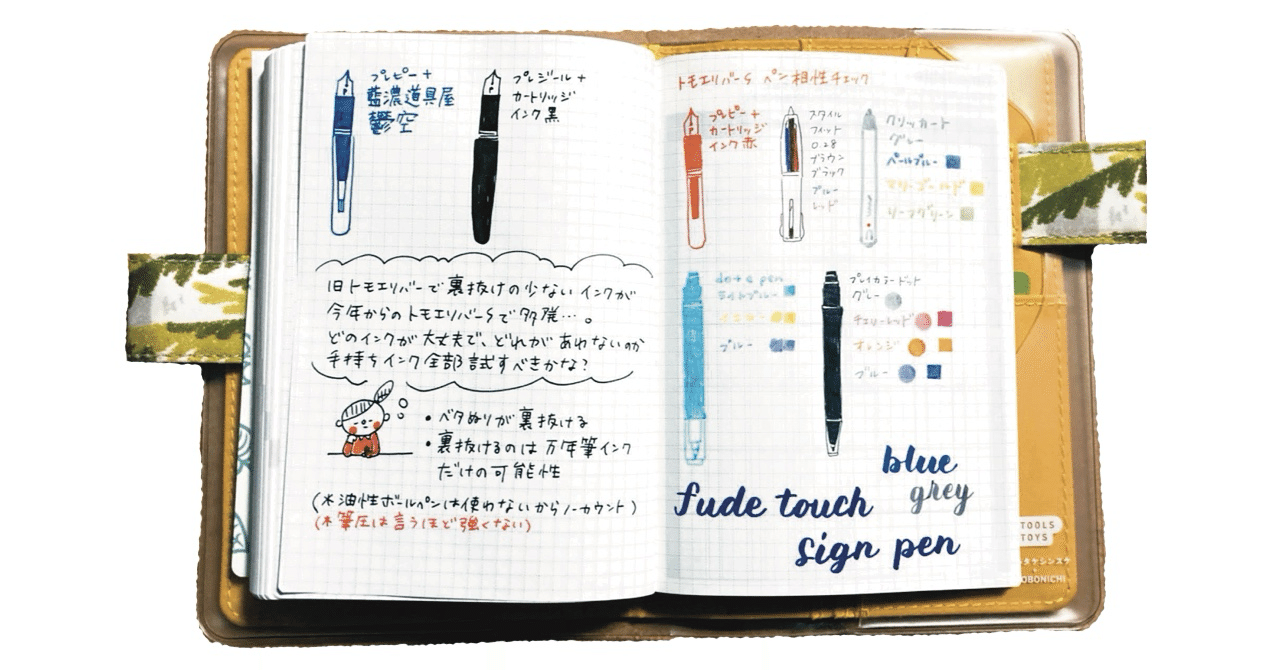 プレピー+
藍濃道具屋
鬱空
プレジール+
カートリッジ
インク黒
旧トモエリバーで裏抜けの少ないインクが
今年からのトモエリバーSで多発…。
どのインクが大丈夫で、どれがあわないのか
手持ちインク全部試すべきかな?
・ベタぬりが裏抜ける
・裏抜けるのは万年筆インク
だけの可能性
(※油性ボールペンは使わないからノーカウント)
(※筆圧は言うほど強くない)
トモエリバーS ペン相性チェック
プレピー+
カートリッジ
インク赤
スタイル
フィット
0.28
ブラウン
ブラック
ブルー
レッド
クリッカート
グレー
ペールブルー
マリーゴールド
リーフグリーン
dot e pen
ライトブルー
イエロー
ブルー
プレイカラードット
グレー
チェリーレッド
オレンジ
ブルー
blue
grey
fude touch
sign pen
TOOLS
TOYS
OBONICHI